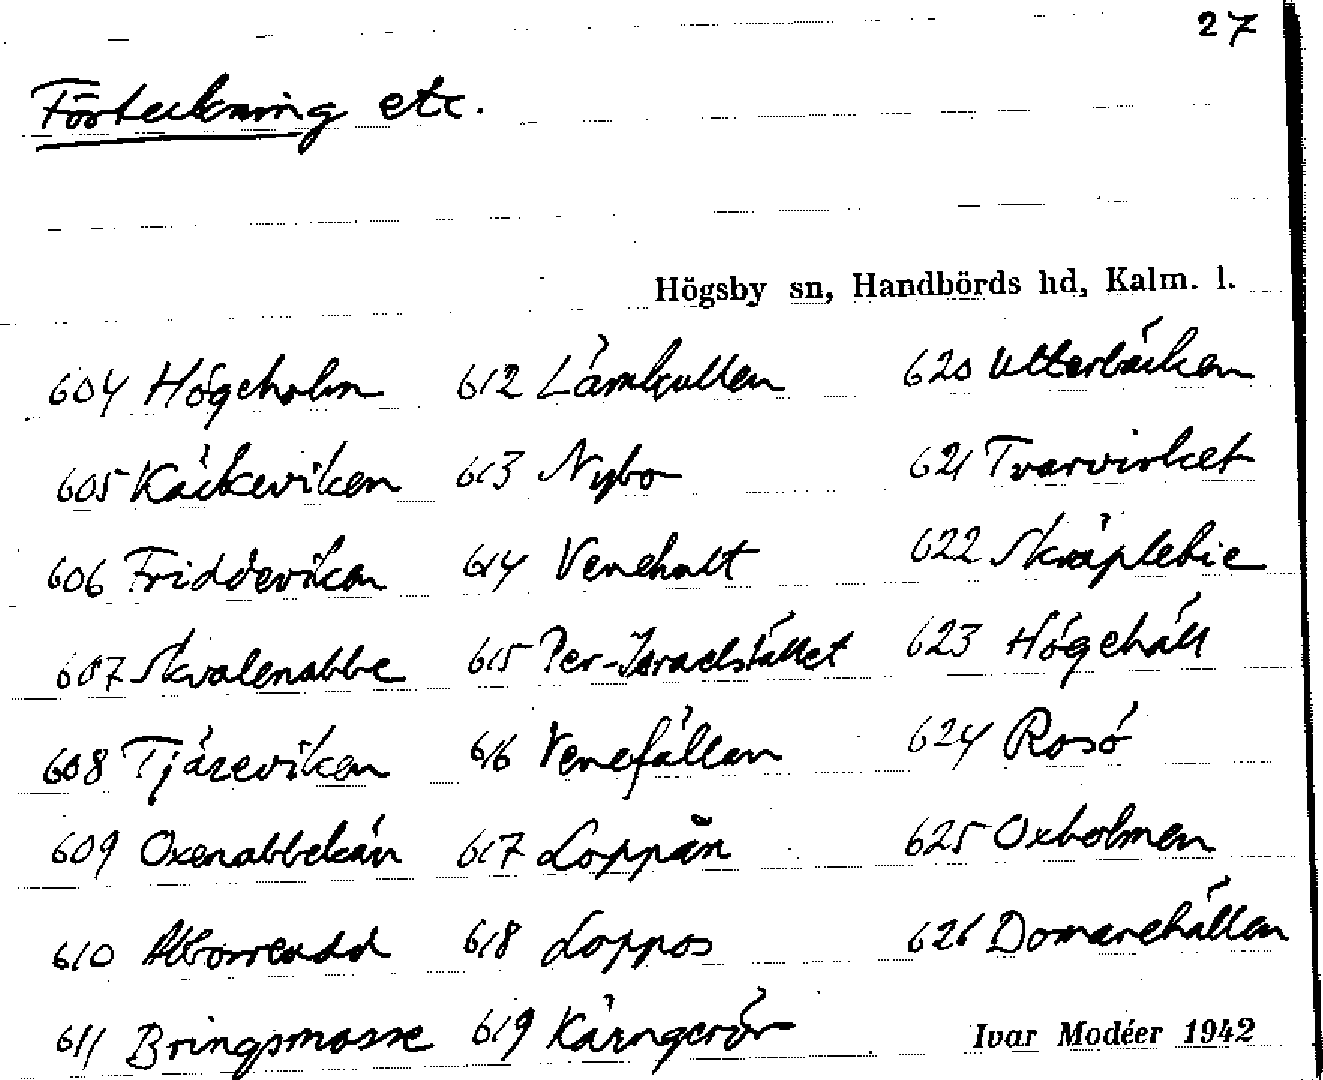 27
Förteckning etc.
Högsby sn, Handbörds hd, Kalm. l.
604 Högeholm 612 Lämkullen 620 Utterbäcken
605 Käckeviken 613 Nybo 621 Tvarvirket
606 Friddeviken 614 Venehalt 622 Skräplebie
607 Skvalenabbe 615 Per-Israelstället 623 Högehäll
608 Tjäreviken 616 Venefällan 624 Rosö
609 Oxenabbekän 617 Loppån 625 Oxholmen
610 Aborreudd 618 Loppos 626 Domarehällen
611 Bringsmosse 619 Käringerör Ivar Modéer 1942